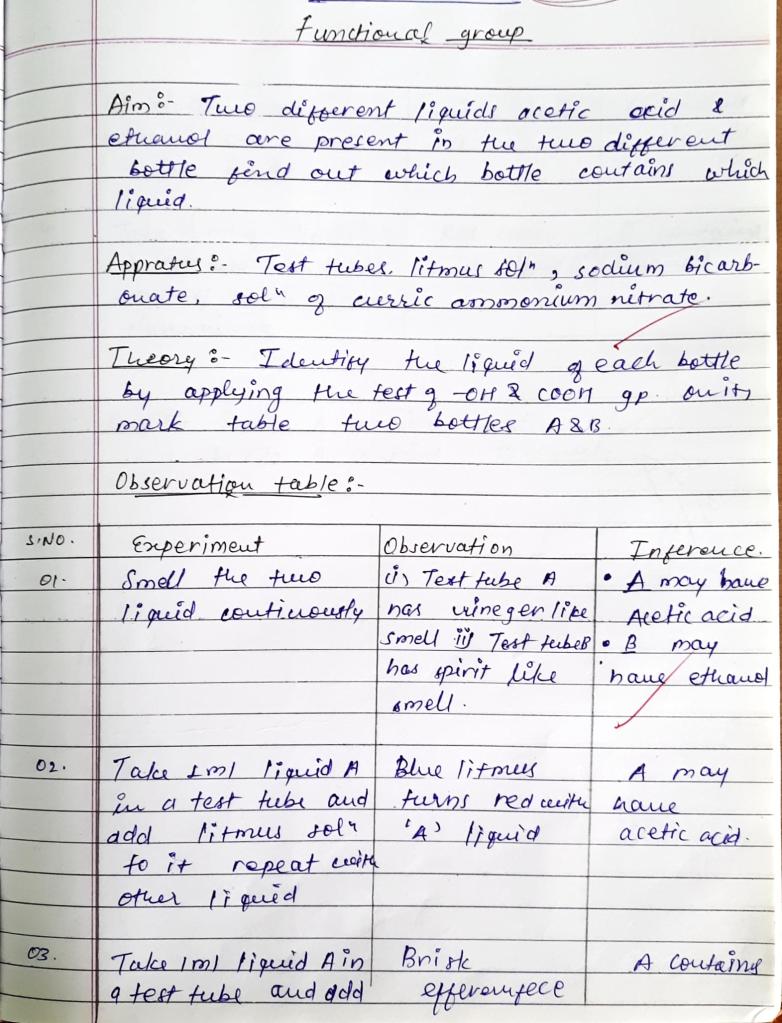 Functional group
Aim :- Two different liquids acetic acid &
ethanol are present in the two different
bottle find out which bottle contains which
liquid.
Appratus :- Test tubes. litmus solⁿ, sodium bicarb-
onate, solⁿ of curric ammonium nitrate.
Theory :- Identify the liquid of each bottle
by applying the test of -OH & COOH gp. on it,
mark table two bottles A & B.
Observation table :-
S.NO. Experiment Observation Inference.
01. Smell the two (i) Test tube A • A may have
liquid continuously has vineger like Acetic acid
smell ii) Test tube B • B may
has spirit like have ethanol
smell.
02. Take 1ml liquid A Blue litmus A may
in a test tube and turns red with have
add litmus solⁿ 'A' liquid acetic acid.
to it repeat with
other liquid
03. Take 1ml liquid A in Brisk A contains
a test tube and add